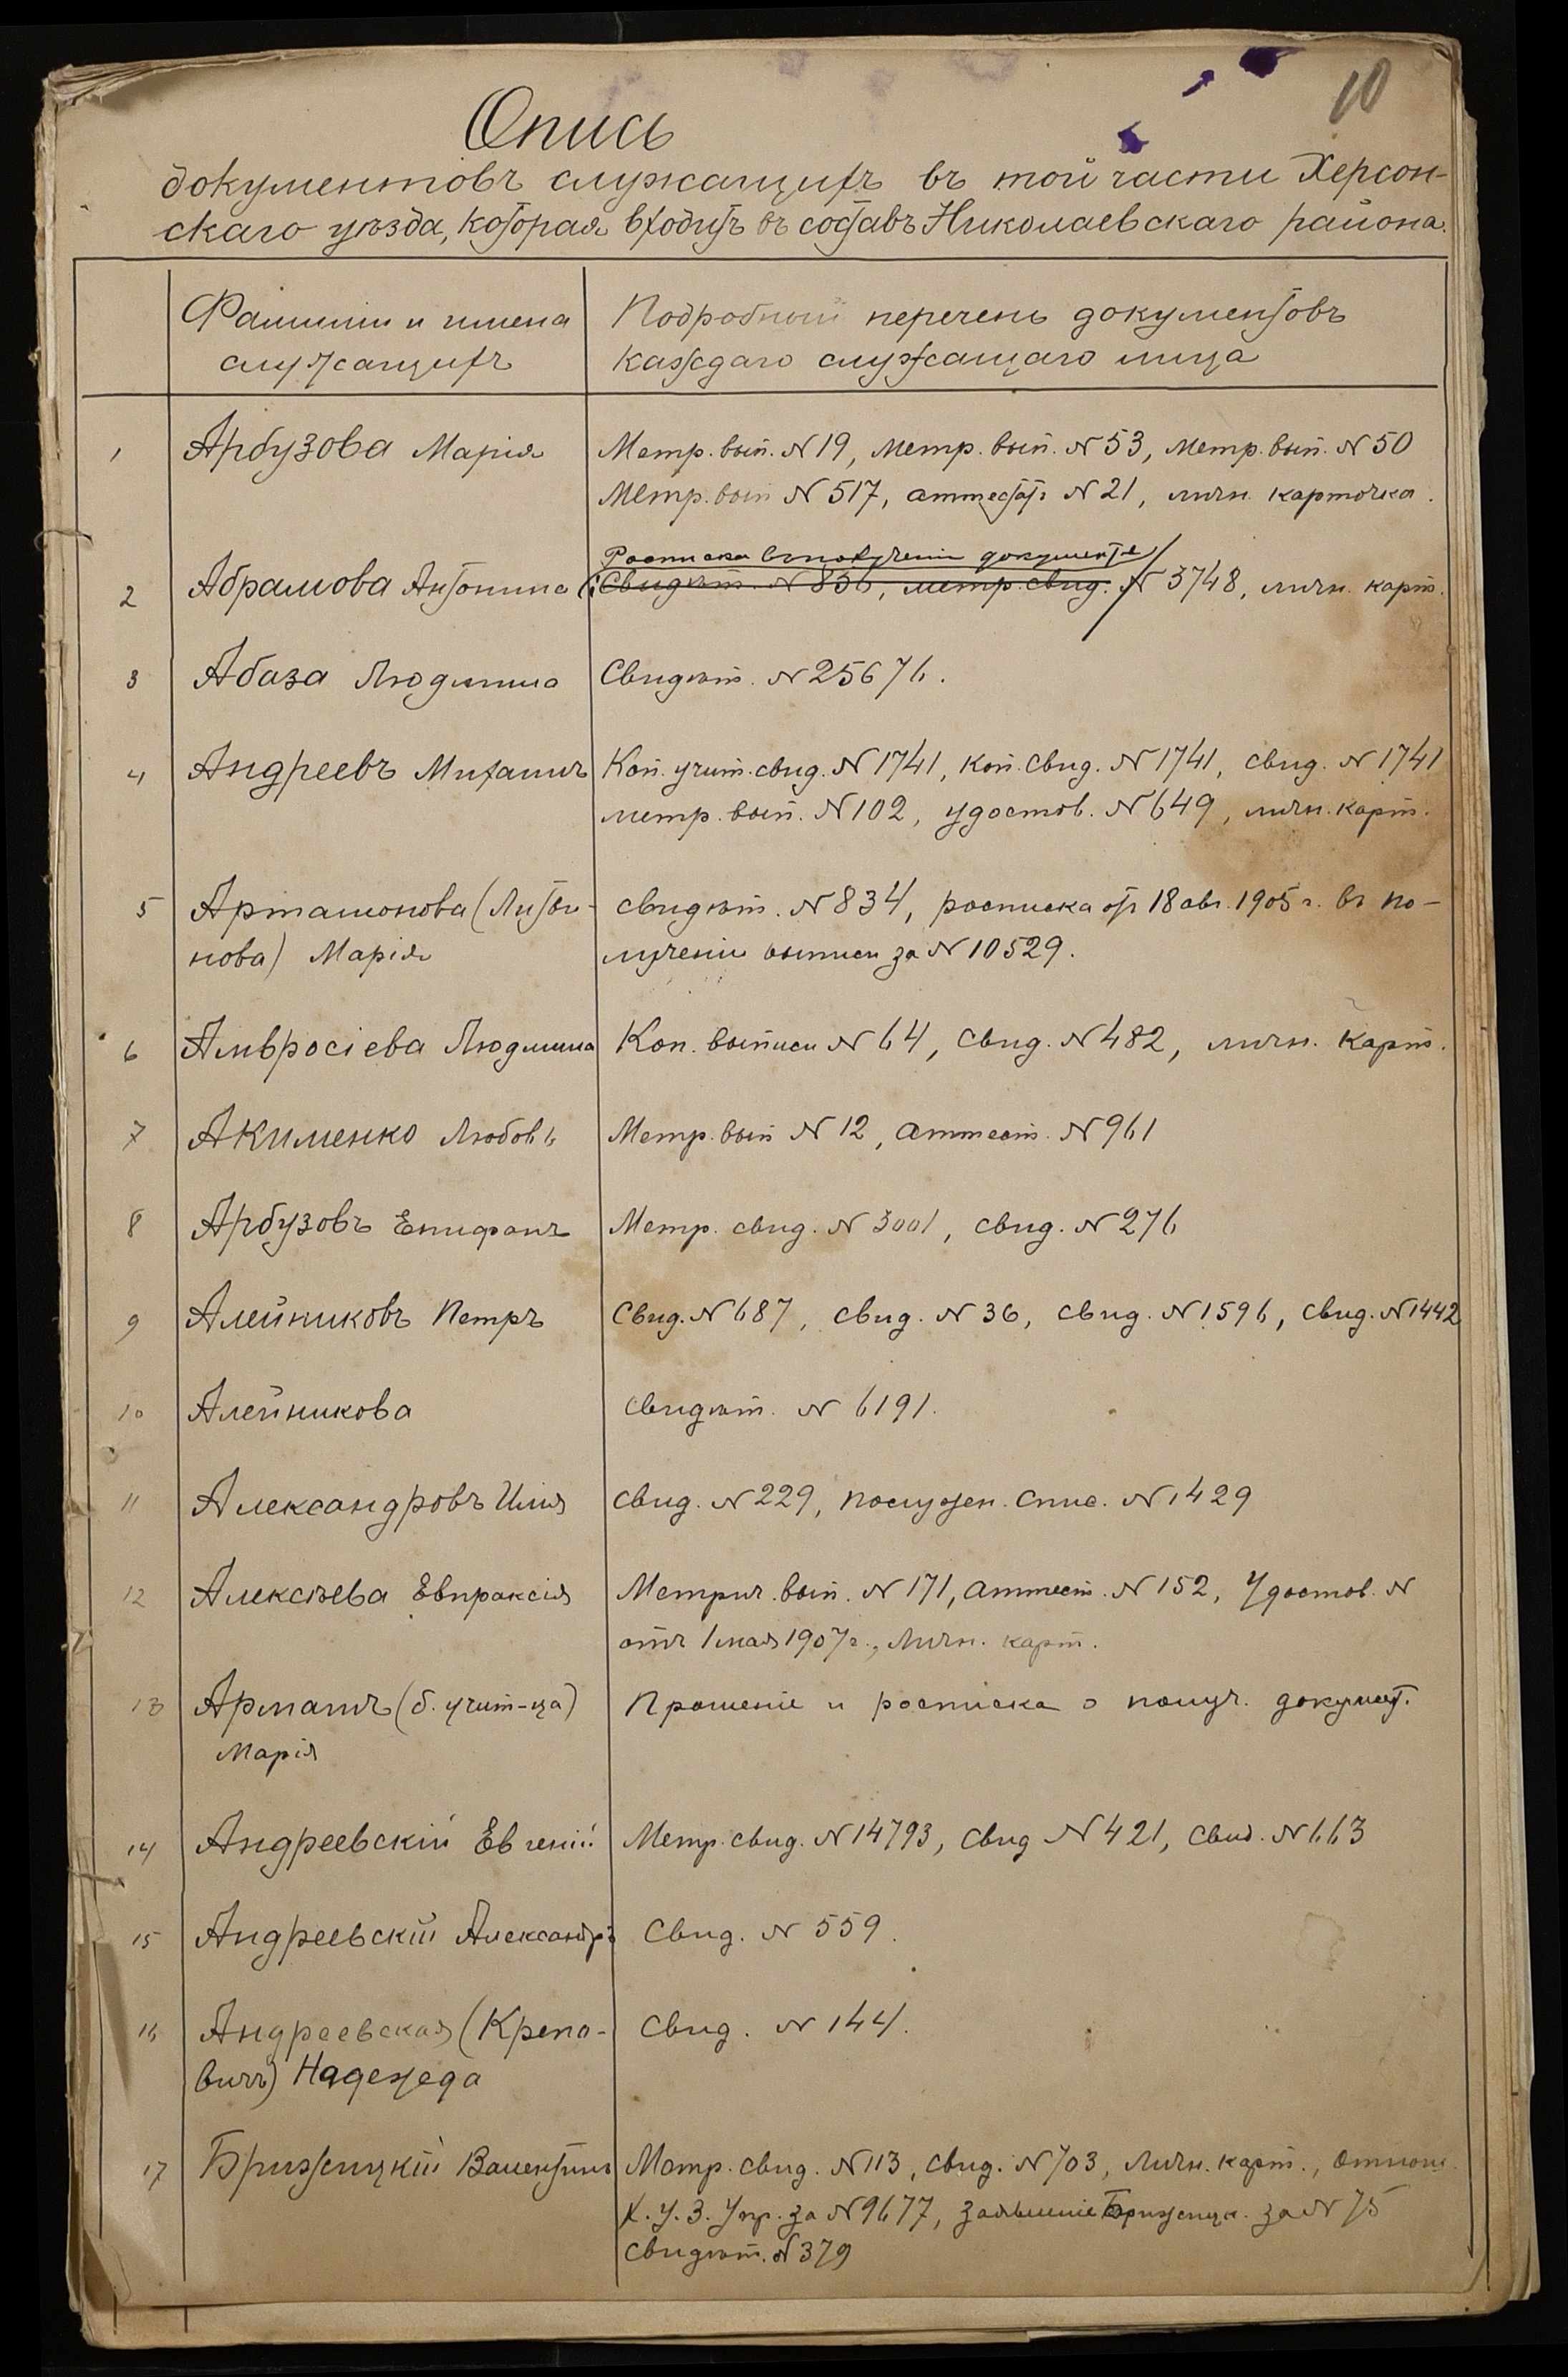 10
Опись
документовъ служащихъ въ той части Херсон-
скаго уѣзда, которая входитъ въ составъ Николаевскаго района.
Фамиліи и имена
служащихъ
Подробный перечень документовъ
каждаго служащаго лица
1 Арбузова Марія Метр. вып. № 19, метр. вып. № 53, метр. вып. № 50
Метр. вып № 517, аттестатъ № 21, личн. карточка.
Росписка въ получении документа
2 Абрамова Антонина Свидѣт. № 836, метр. свид. № 3748, личн. карт.
3 Абаза Людмила Свидѣт. № 25676.
4 Андреевъ Михаилъ Коп. учит. свид. № 1741, коп. свид. № 1741, свид. № 1741
метр. вып. № 102, удостов. № 649, личн. карт.
5 Артамонова (Литви- свидѣт. № 834, росписка отъ 18 авг. 1905 г. въ по-
нова) Марія лученіи выписи за № 10529.
6 Амвросіева Людмила Коп. выписи № 64, свид. № 482, личн. карт.
7 Акименко Любовь Метр. вып № 12, аттест. № 961
8 Арбузовъ Епифанъ Метр. свид. № 3001, свид. № 276
9 Алейниковъ Петръ Свид. № 687, свид. № 36, свид. № 1596, свид. № 1442
10 Алейникова свидѣт. № 6191.
11 Александровъ Илія свид. № 229, послужен. спис. № 1429
12 Алексѣева Евпраксія Метрич. вып. № 171, аттест. № 152, Удостов. №
отъ 1 мая 1907 г., личн. карт.
13 (б. учит-ца) Прошеніе и росписка о получ. документ.
Марія
14 Андреевскій Евгеній Метр. свид. № 14793, свид № 421, свид. № 663
15 Андреевскій Александръ Свид. № 559.
16 Андреевская (Крепо- свид. № 144.
вичъ) Надежда
17 Брижицкій Валентинъ Метр. свид. № 113, свид. № 703, личн. карт., отнош.
Х. У. З. Упр. за № 9677, заявленіе Брижицк. за № 75
свидѣт. № 379